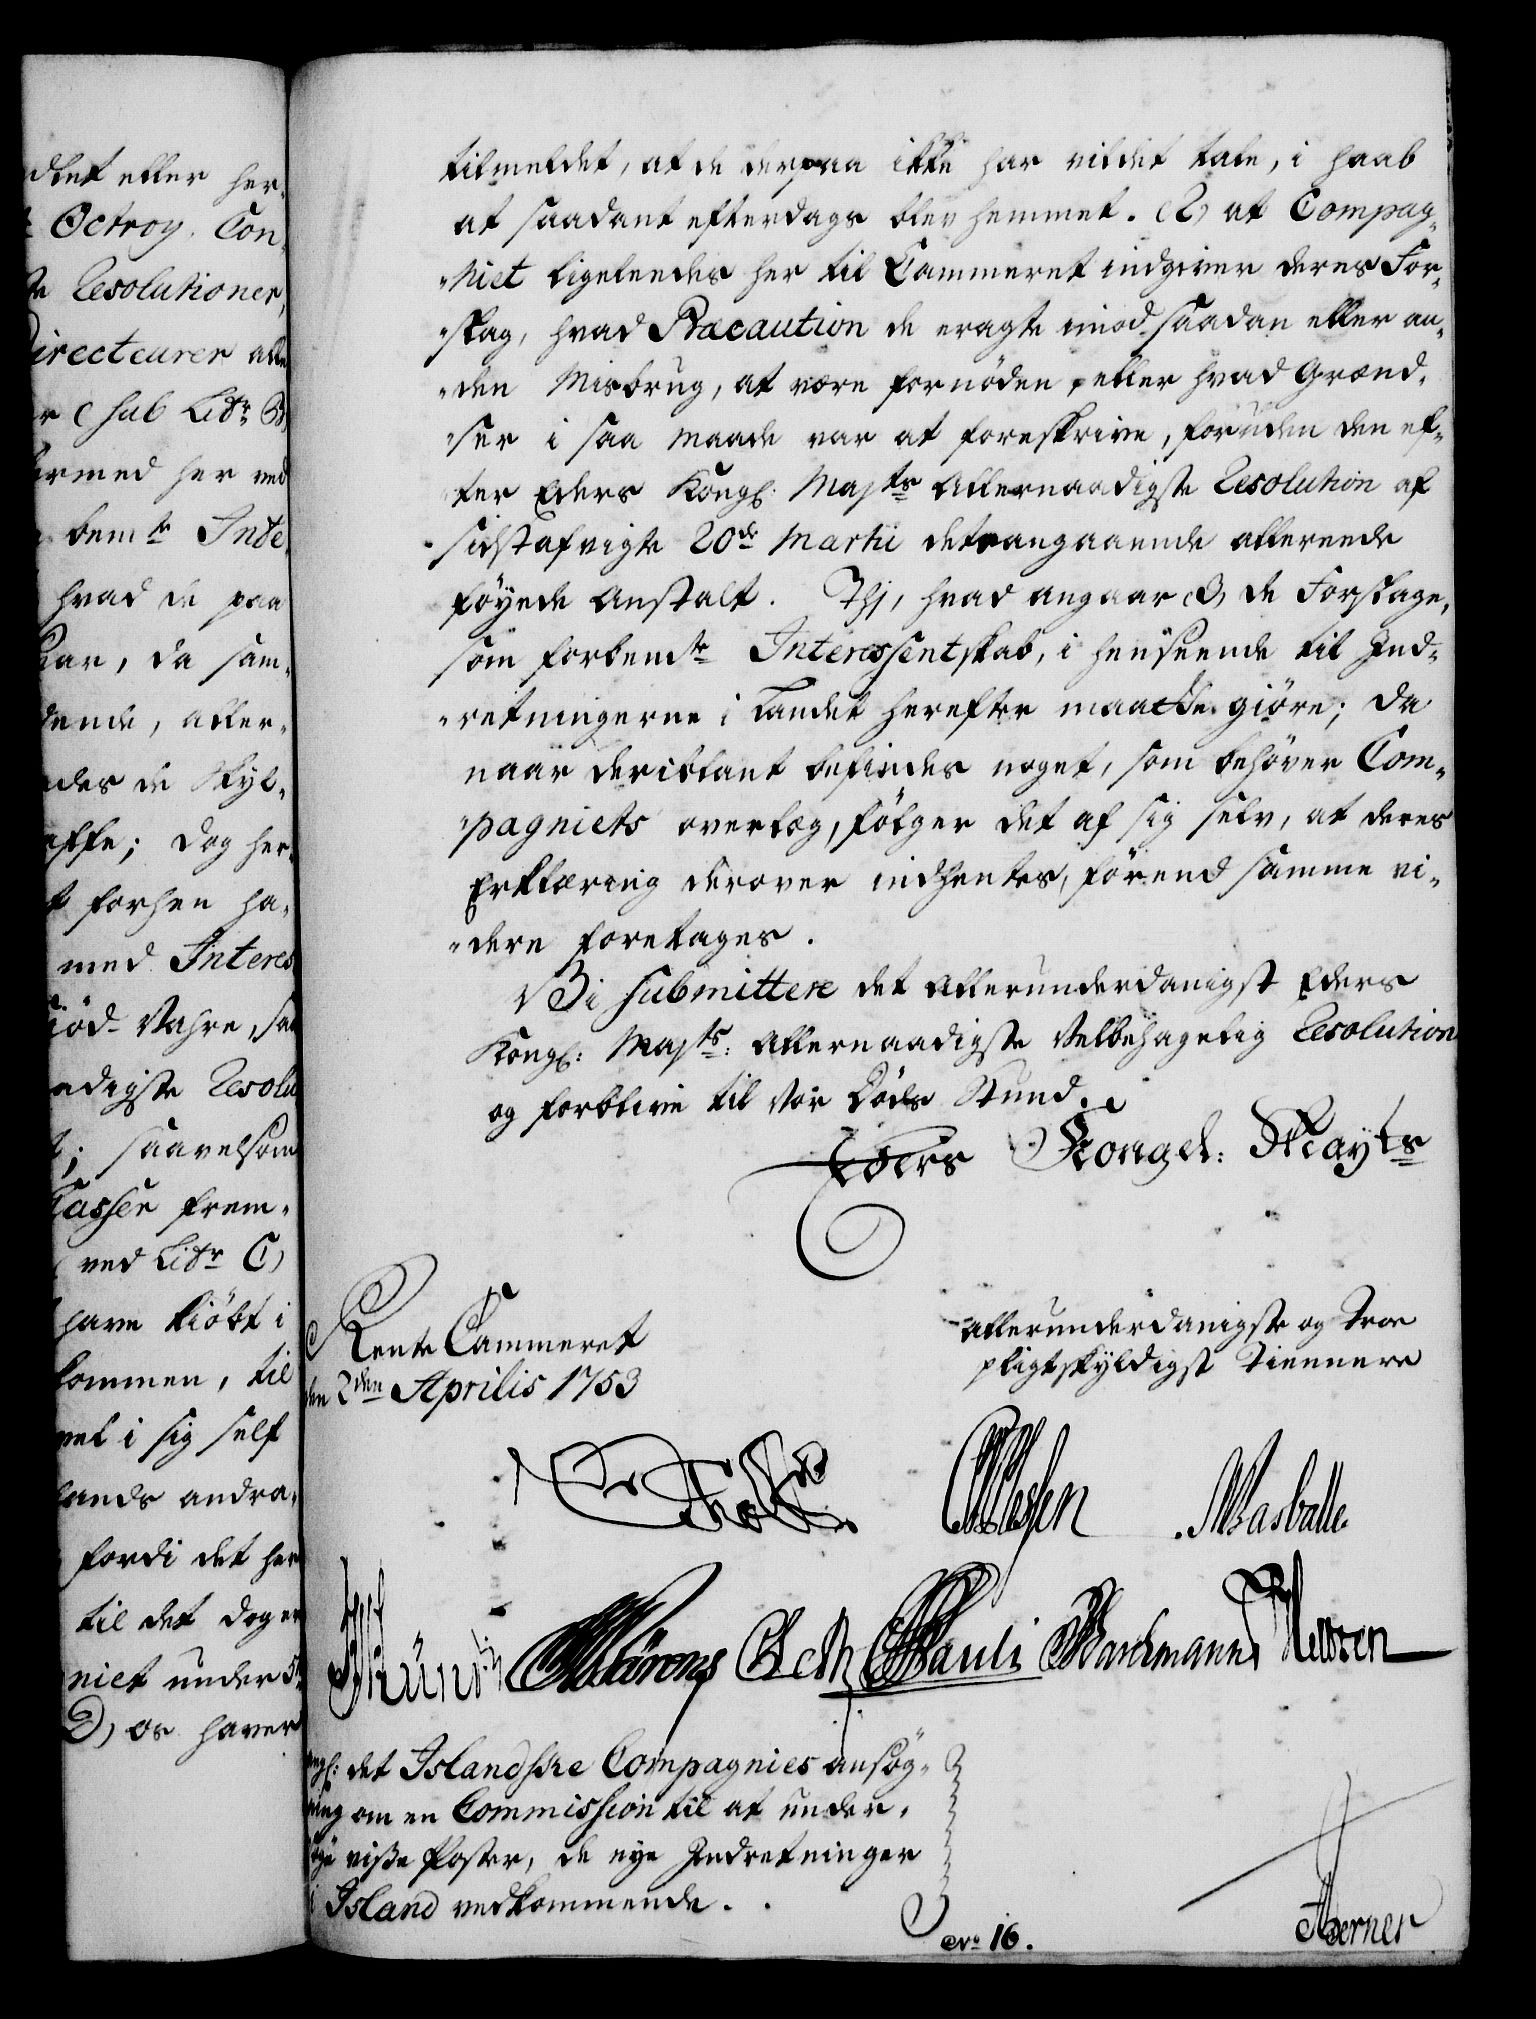 dlet eller her-
Octroy, Con-
te Resolutioner,
Directeurer alle
r (sub Litr: B)
hermed her ved
bemte Inte-
hvad de paa
har, da sam-
dende, aller-
des de Skyl-
affe; dog her-
t forhen ha-
med Interes-
iød-Vahre, saa
adigste Resolu-
t; saavelsom
Cassen frem-
(ved Litr C)
have kiøbt i
kommen, til
vel i sig self
lands andra-
fordi det her
til det dog er
niet under 5te
D) os haver
tilmeldet, at de derpaa ikke har villet tale, i haab
at saadant efterdags blev hemmet. (2) at Compag-
niet ligeleedes her til Cammeret indgiver deres For-
slag, hvad Præcaution de eragte imod saadan eller an-
den Misbrug, at være fornøden, eller hvad Grænd-
ser i saa maade var at foreskrive, foruden den ef-
ter Eders Kongl: Majts Allernaadigste Resolution af
sidstafvigte 20de Martii detteangaaende allereede
føyede Anstalt. Thj, hvad angaar (3) de Forslage,
som forbemte Interessentskab, i henseende til Ind-
retningerne i Landet herefter maatte giøre; da
naar deriblant befindes noget, som behøver Com-
pagniets overlæg, følger det af sig selv, at deres
Erklæring derover indhentes, førend samme vi-
dere foretages.
Vi submittere det allerunderdanigst Eders
Kongl: Majts: Allernaadigste Velbehagelig Resolution
og forblive til vor Døds Stund.
Eders Kongel: Mayts
Rente Cammeret
den 2den Aprilis 1753
allerunderdanigste og Troe
pligtskyldigst Tiennere
Holst
Wessen
Masballe
Pauli
Wardmann
ang: det Islandske Compagnies ansøg-
ning om en Commission til at under-
søge visse Poster, de nye Indretninger
i Island vedkommende.
No 16.
Aberner